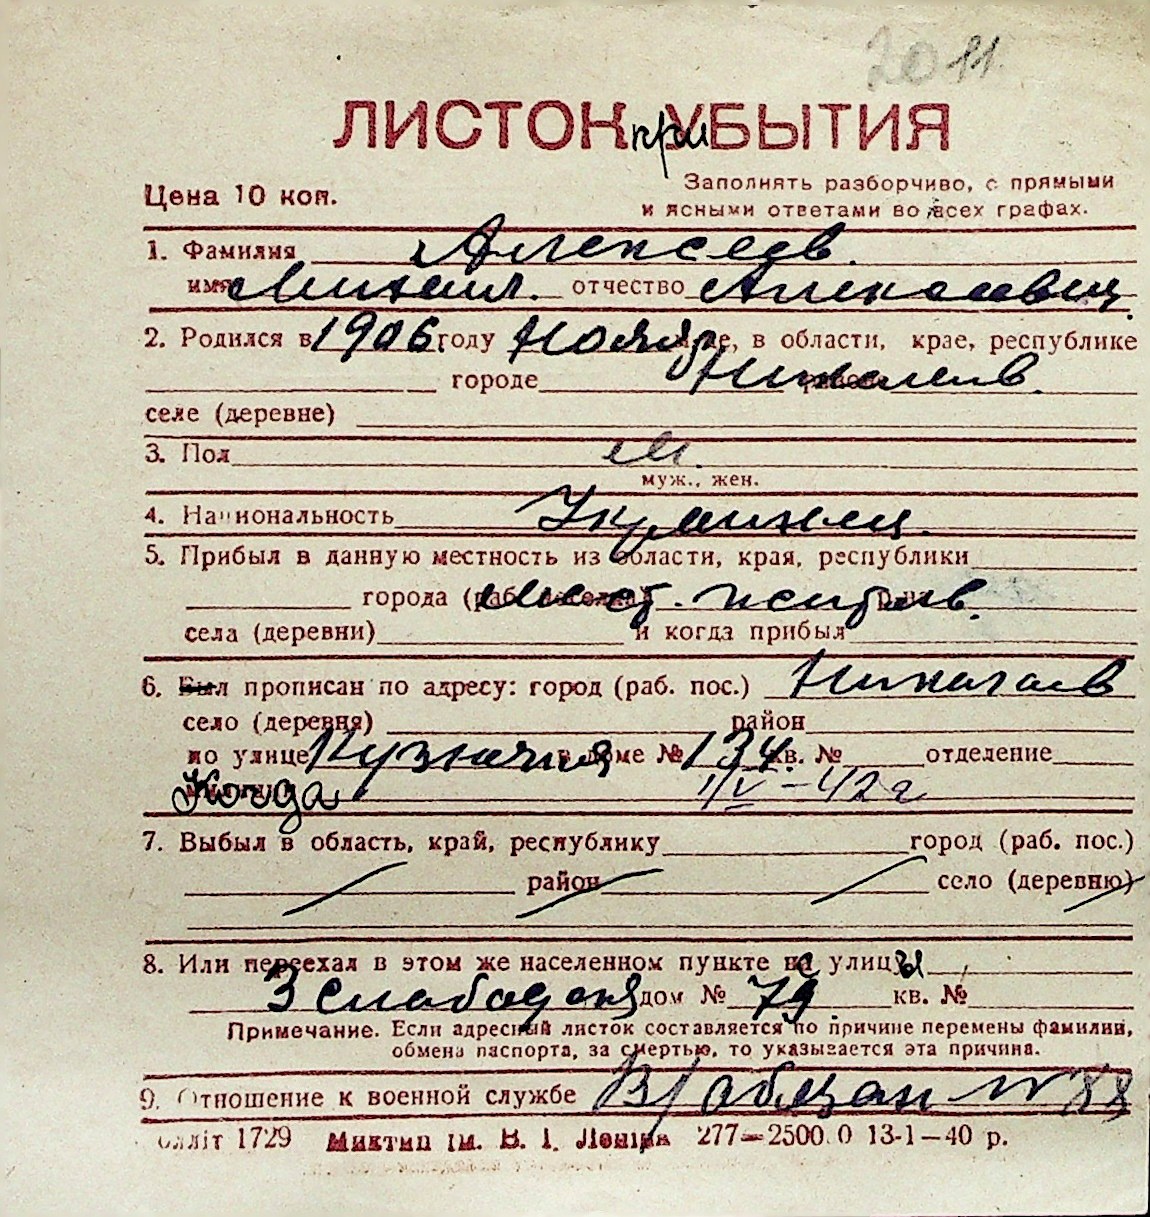 2011
ЛИСТОК при УБЫТИЯ
Цена 10 коп.
Заполнять разборчиво, с прямыми
и ясными ответами во всех графах.
1. Фамилия Алексеев.
имя Михаил. отчество Алексеевич.
2. Родился в 1906 году Ноябр в области, крае, республике
городе Николаев.
селе (деревне)
3. Пол М.
муж., жен.
4. Национальность Украинец.
5. Прибыл в данную местность из области, края, республики
города (раб. поселка) Мест. житель.
села (деревни) и когда прибыл
6. Был прописан по адресу: город (раб. пос.) Николаев
село (деревня) район
по улице Кузнечная в доме № 134 кв. № отделение
Когда 1/V-42 г
7. Выбыл в область, край, республику город (раб. пос.)
район село (деревню)
8. Или переехал в этом же населенном пункте с улицы
3 Слободская дом № 79 кв. №
Примечание. Если адресный листок составляется по причине перемены фамилии,
обмена паспорта, за смертью, то указывается эта причина.
9. Отношение к военной службе В/обязан
1729 Миктип ім. В. І. Леніна 277—2500.0 13-1—40 р.